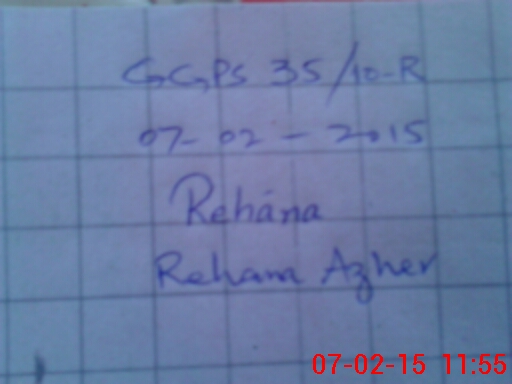 GGPS 35/10-R
07-02-2015
Rehana
Rehana Azher
07-02-15 11:55